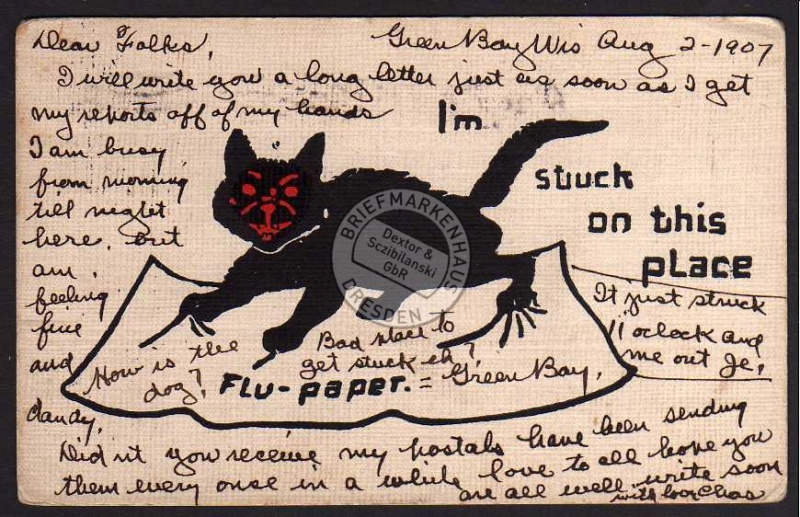 Dear Folks,
Green Bay Wis Aug 2-1907
I will write you a long letter just as soon as I get
my reports off of my hands
I am busy
from morning
till night
here, but
am
feeling
fine
and
dandy,
I'm
stuck
on this
place
It just struck
11 oclock and
me out Je,
How is the
dog?
Bad place to
get stuck eh?
Flu-paper. = Green Bay,
Did nt you receive my postals have been sending
them every once in a while love to all hope you
are all well. write soon
with love Chas
BRIEFMARKENHAUS
Dextor &
Sczibilanski
GbR
DRESDEN